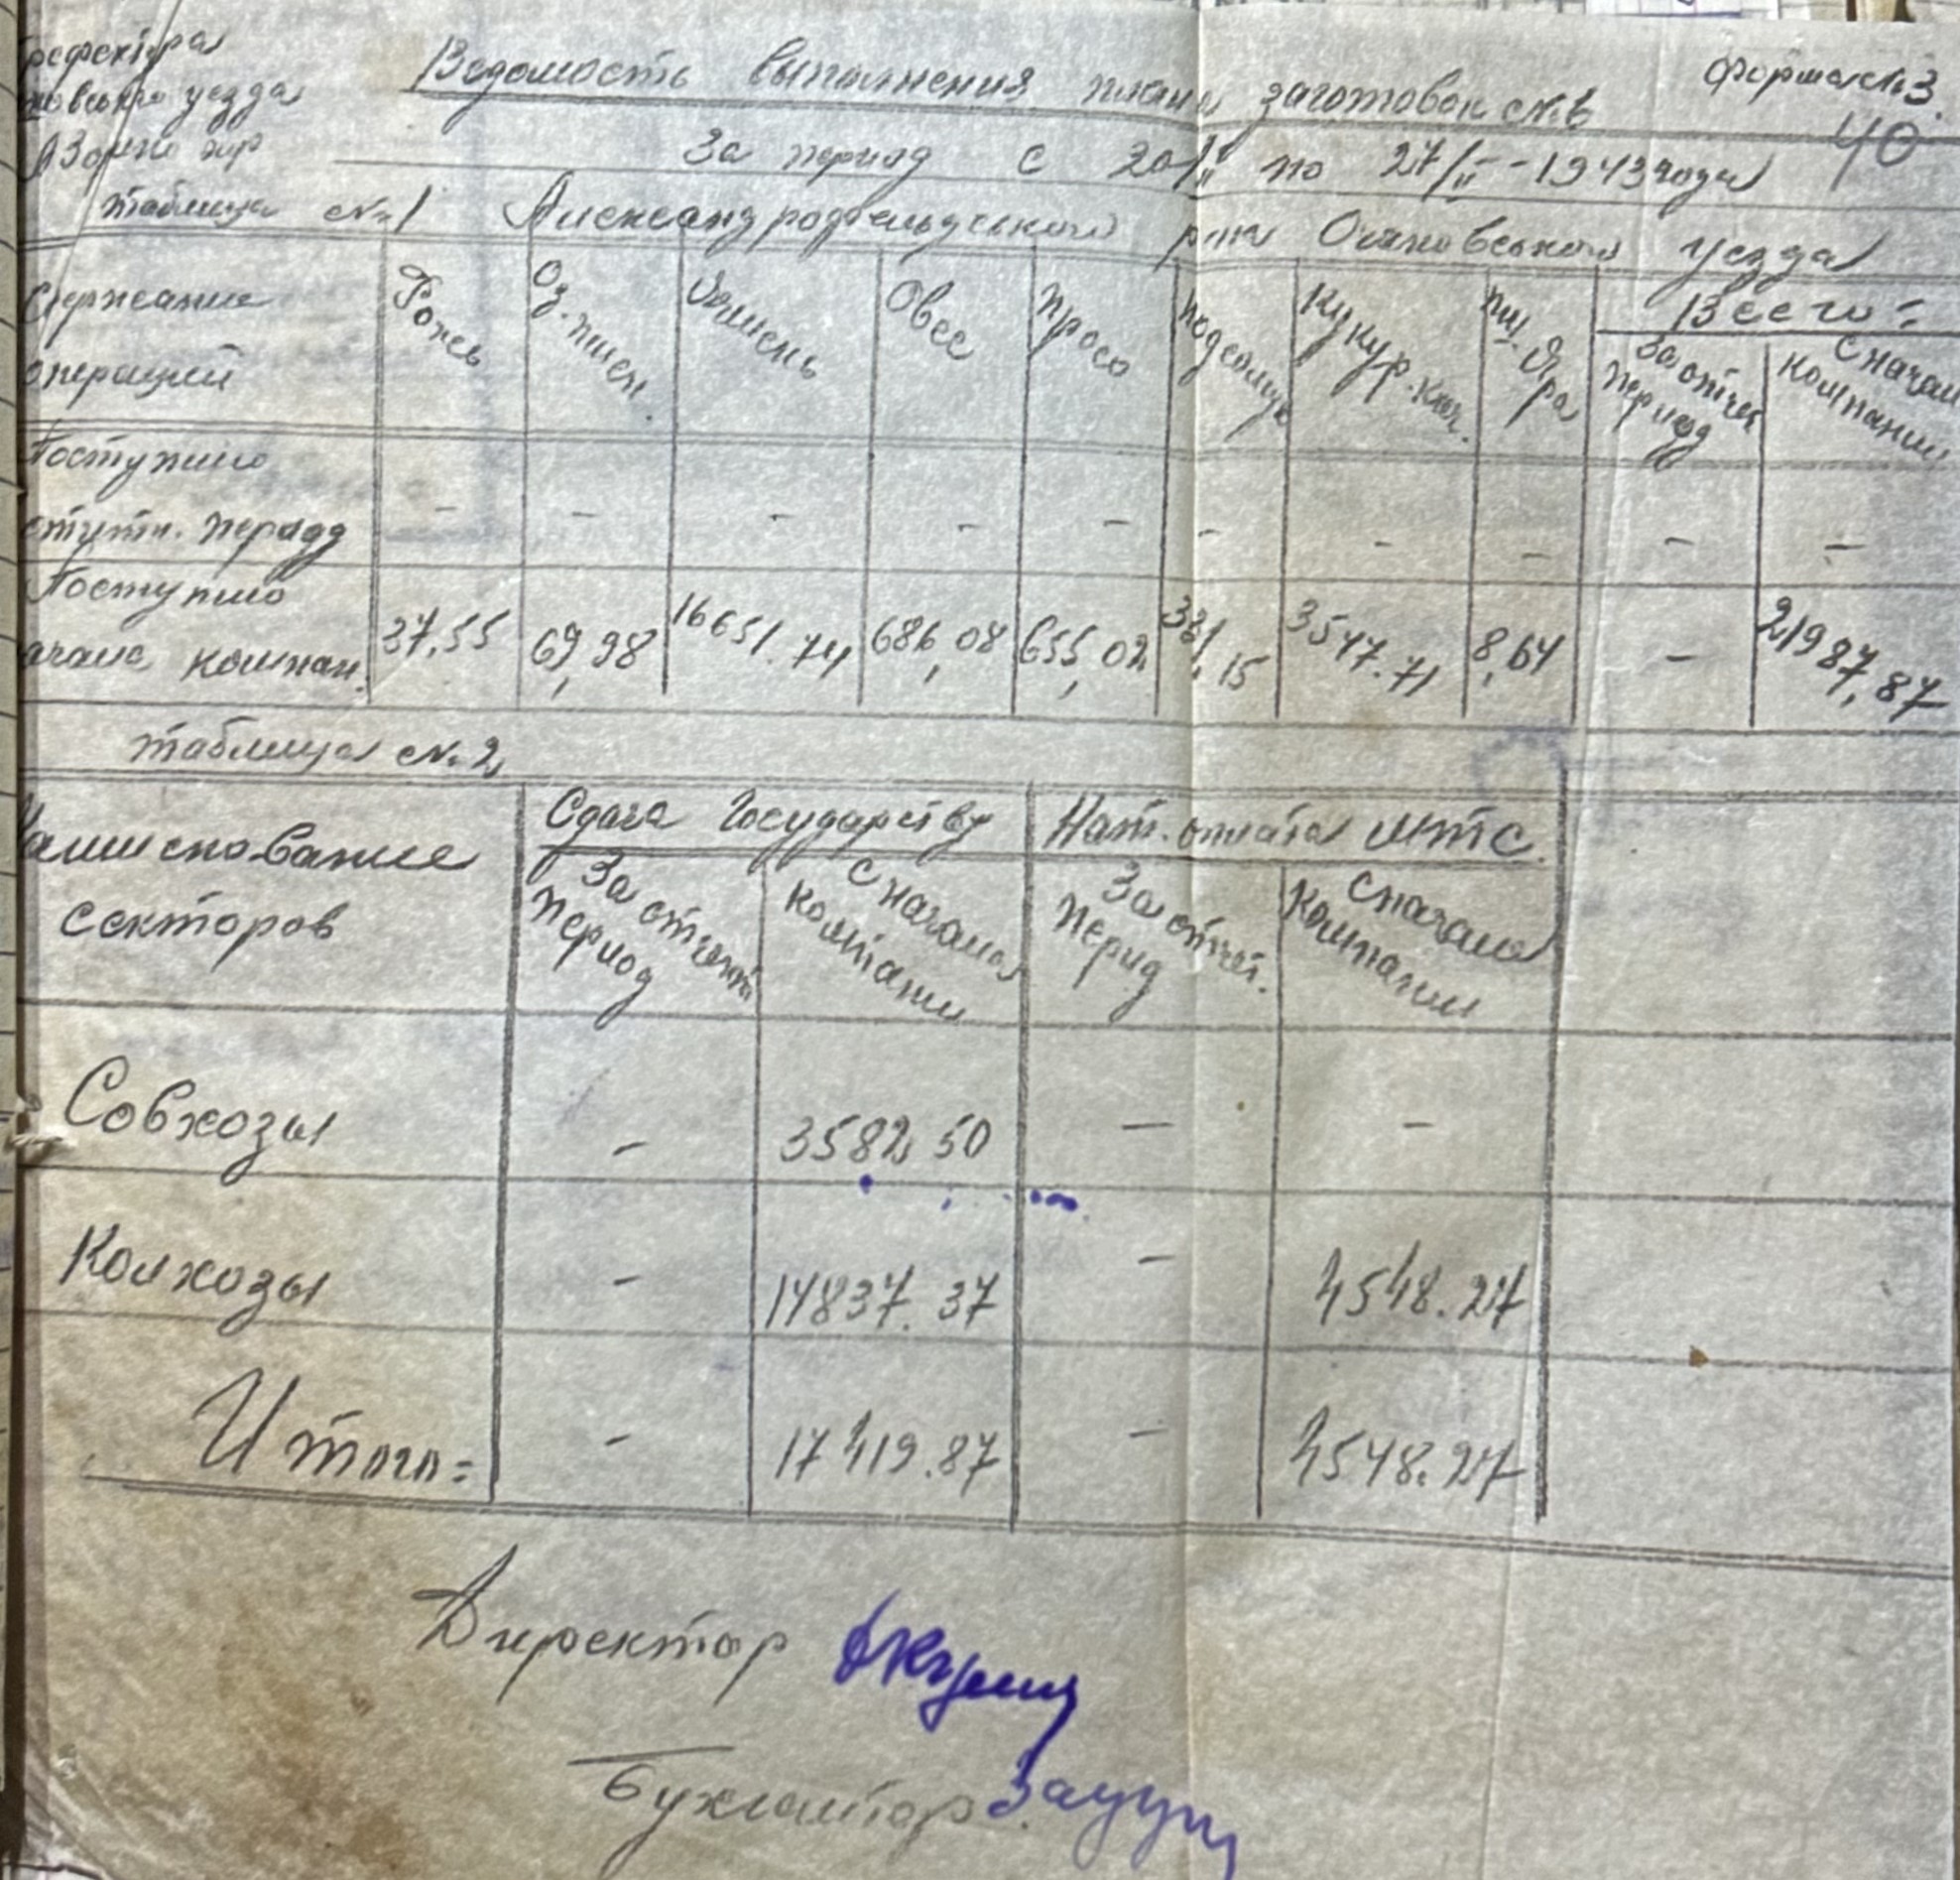 Префектура
ковського уезда
Ведомость выполнения плана заготовок №6
Форма №3
40
За период с 20/II по 27/II - 1943 года
таблица №1 Александродфельдського р-на Очаковського уезда
Содержание операций
Рожь
Оз. пшен.
Ячмень
Овес
Просо
Подсолнух
Кукур. кач.
пш. Яра
Всего:
За отчет период
С начала компании
Поступило
отчетн. период
- - - - - - - - - -
Поступило
начала компан.
37,55 69,98 16651.74 686,08 655,02 331,15 3547.71 8,64 - 21987,87
таблица №2
Наименование секторов
Сдача Государству
Нат. оплата МТС.
За отчетн период
С начала компании
За отчет. период
С начала компании
Совхозы - 3582 50 - -
Колхозы - 14837.37 - 4548.27
Итого: - 17419.87 - 4548.27
Директор
Бухгалтер